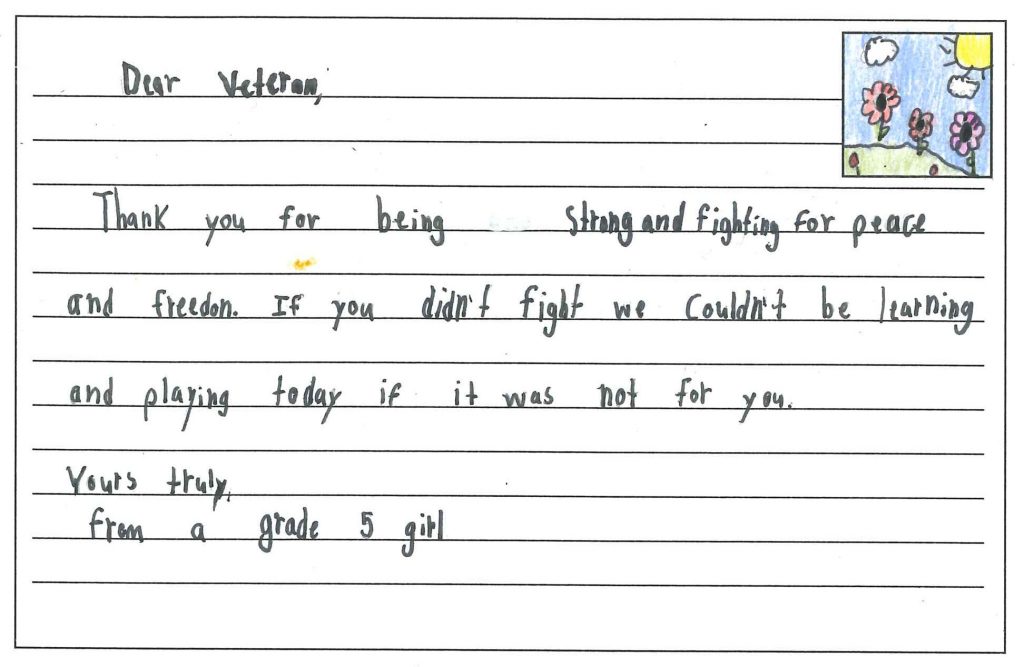 Dear Veteran,
Thank you for being strong and fighting for peace
and freedon. If you didn't fight we couldn't be learning
and playing today if it was not for you.
Yours truly,
from a grade 5 girl